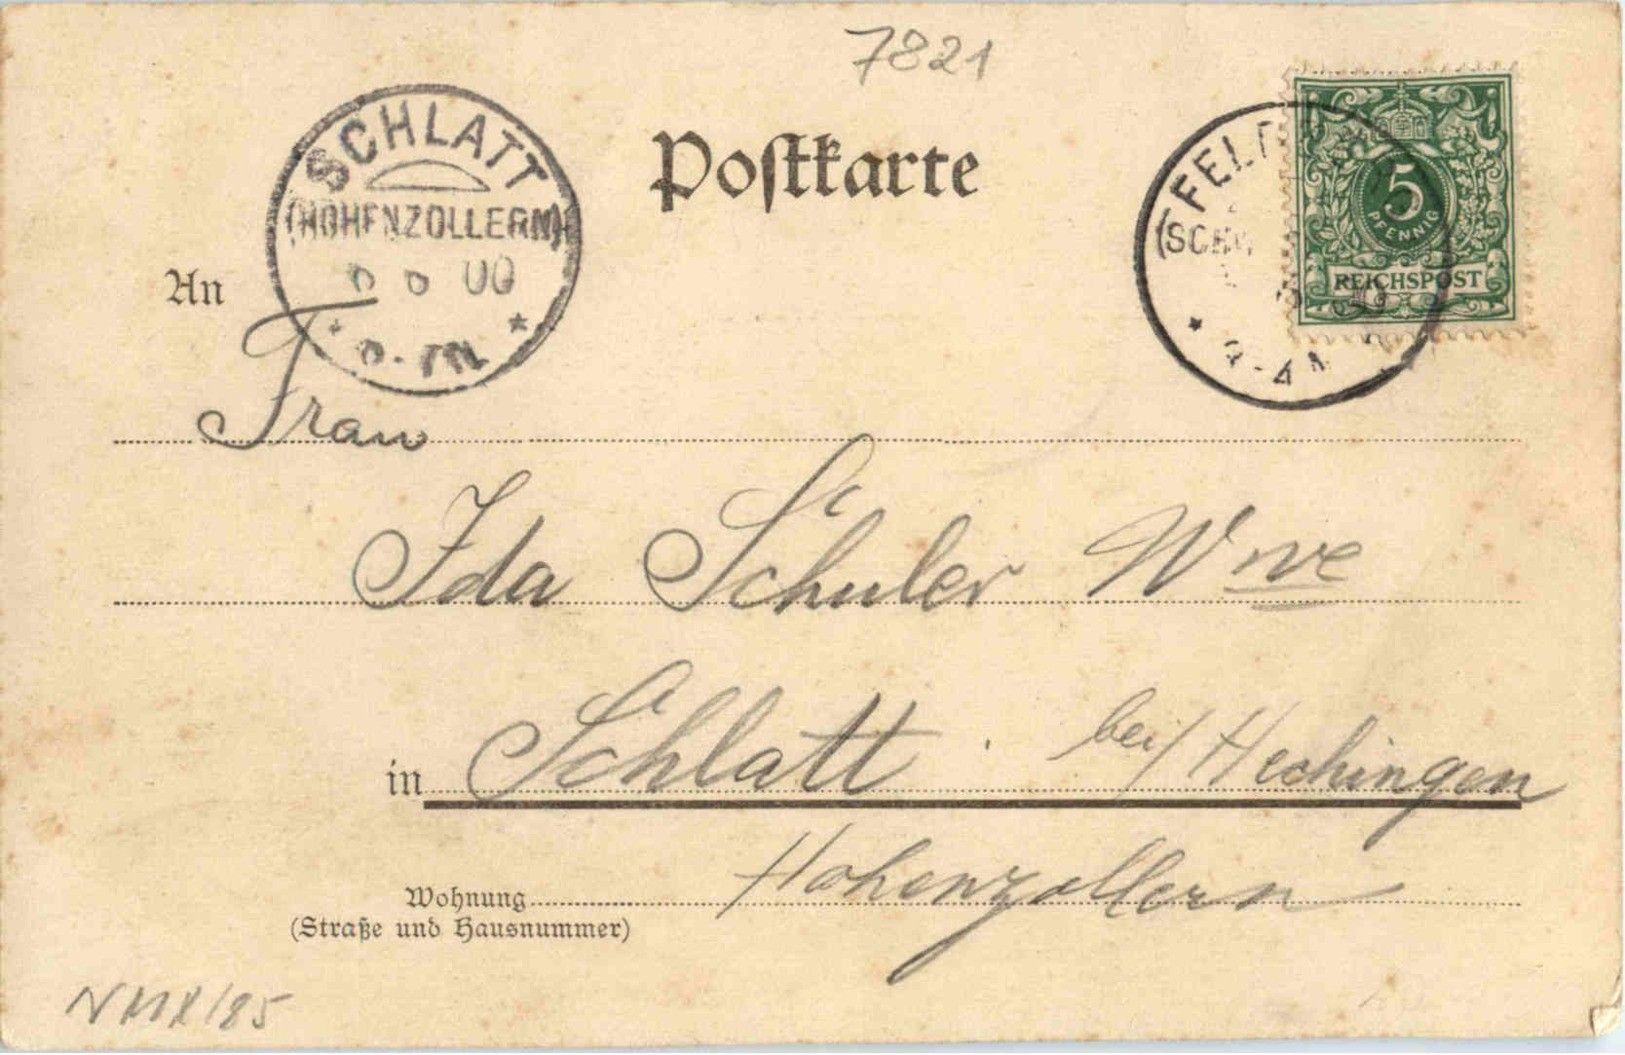 7821
SCHLATT
(HOHENZOLLERN)
00
Poſtkarte
5
PFENNIG
REICHSPOST
An
Frau
Ida Schuler Wwe
in Schlatt bei/Hechingen
Hohenzollern
Wohnung
(Straße und Hausnummer)